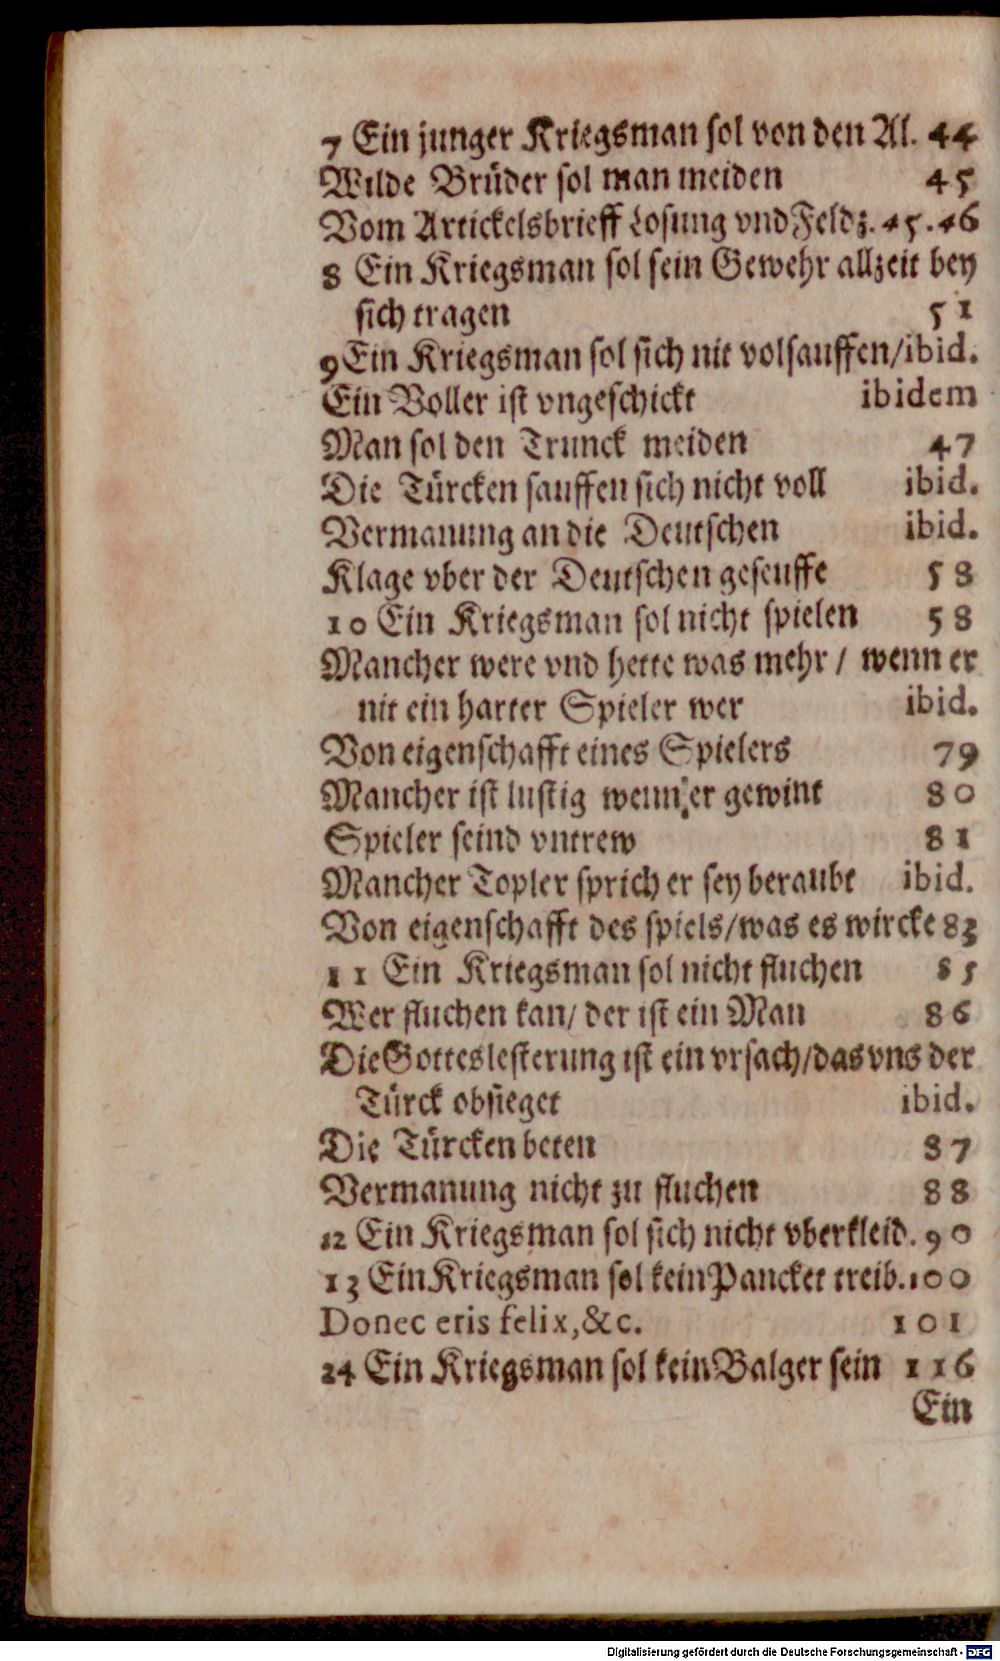 7 Ein junger Kriegsman sol von den Al. 44
Wilde Brüder sol man meiden 45
Vom Artickelsbrieff Losung vnd Feldz. 45.46
8 Ein Kriegsman sol sein Gewehr allzeit bey
sich tragen 51
9 Ein Kriegsman sol sich nit volsauffen/ibid.
Ein Voller ist vngeschickt ibidem
Man sol den Trunck meiden 47
Die Türcken sauffen sich nicht voll ibid.
Vermanung an die Deutschen ibid.
Klage vber der Deutschen geseuffe 58
10 Ein Kriegsman sol nicht spielen 58
Mancher were vnd hette was mehr / wenn er
nit ein harter Spieler wer ibid.
Von eigenschafft eines Spielers 79
Mancher ist lustig wenn er gewint 80
Spieler seind vntrew 81
Mancher Topler sprich er sey beraubt ibid.
Von eigenschafft des spiels/was es wircke 83
11 Ein Kriegsman sol nicht fluchen 85
Wer fluchen kan/ der ist ein Man 86
Die Gotteslesterung ist ein vrsach/das vns der
Türck obsieget ibid.
Die Türcken beten 87
Vermanung nicht zu fluchen 88
12 Ein Kriegsman sol sich nicht vberkleid. 90
13 Ein Kriegsman sol kein Pancket treib. 100
Donec eris felix, &c. 101
24 Ein Kriegsman sol kein Balger sein 116
Ein
Digitalisierung gefördert durch die Deutsche Forschungsgemeinschaft - DFG